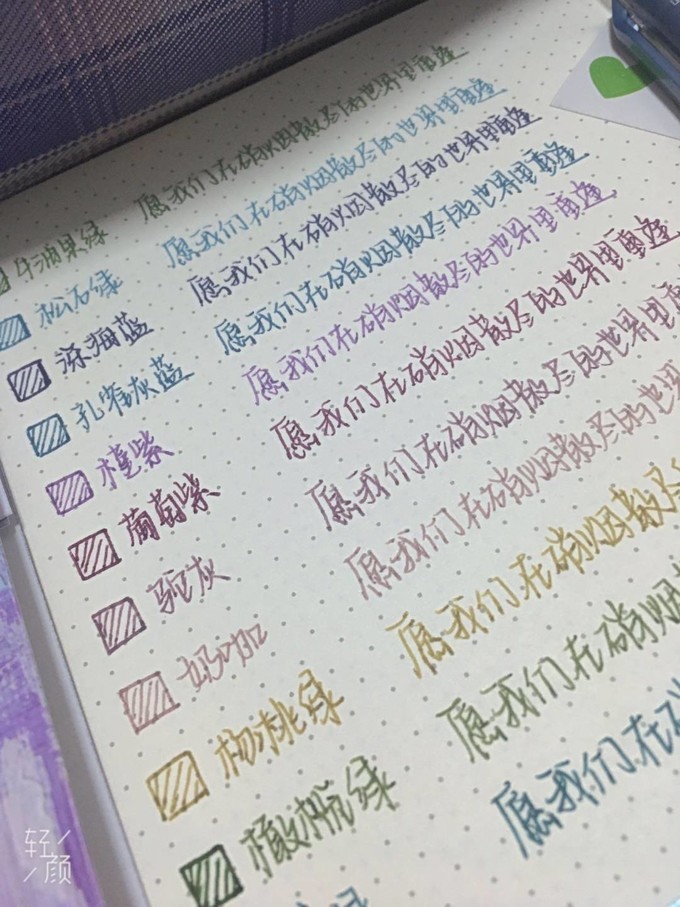 牛油果绿 愿我们在硝烟散尽的世界里重逢
松石绿 愿我们在硝烟散尽的世界里重逢
深海蓝 愿我们在硝烟散尽的世界里重逢
孔雀灰蓝 愿我们在硝烟散尽的世界里重逢
槿紫 愿我们在硝烟散尽的世界里重逢
葡萄紫 愿我们在硝烟散尽的世界里重逢
驼灰 愿我们在硝烟散尽的世界里重
奶咖 愿我们在硝烟散尽的世界
杨桃绿 愿我们在硝烟散尽
橄榄绿 愿我们在硝烟
绿 愿我们在
轻颜